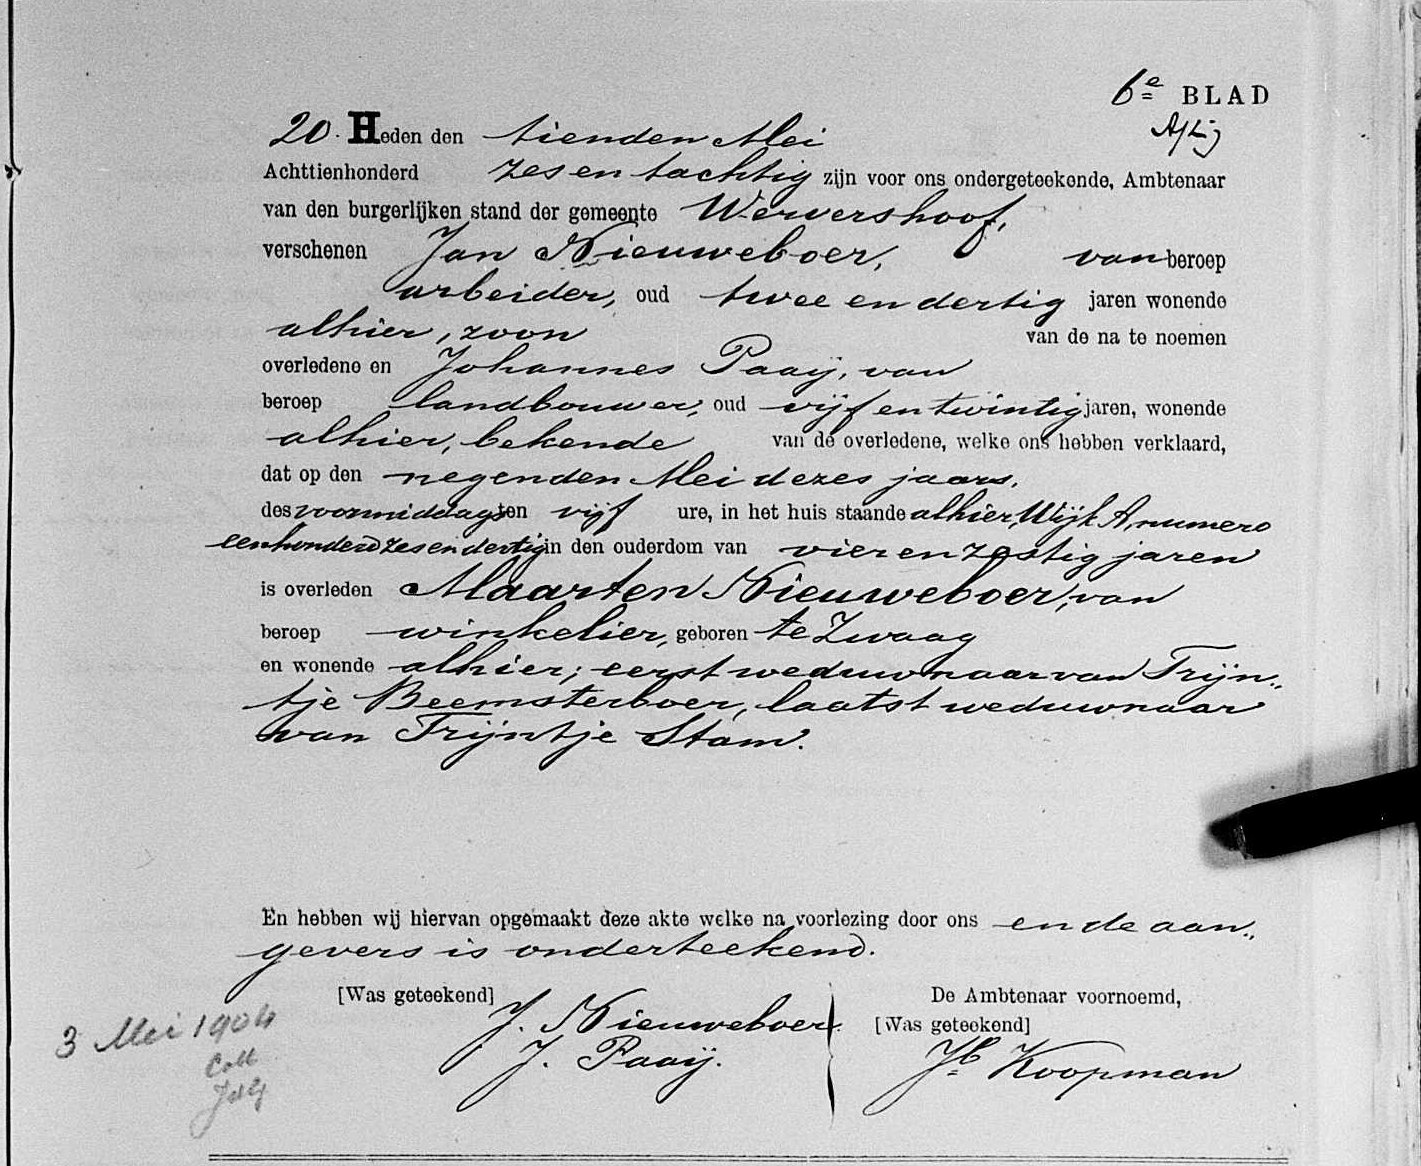 6e BLAD
20. Heden den tienden Mei
Achttienhonderd zes en tachtig zijn voor ons ondergeteekende, Ambtenaar
van den burgerlijken stand der gemeente Wervershoof,
verschenen Jan Nieuweboer, van beroep
arbeider, oud twee en dertig jaren wonende
alhier, zoon van de na te noemen
overledene en Johannes Paaij, van
beroep landbouwer, oud vijf en twintig jaren, wonende
alhier, bekende van de overledene, welke ons hebben verklaard,
dat op den negenden Mei dezes jaars,
des voormiddags ten vijf ure, in het huis staande alhier, Wijk A, numero
eenhonderd zes en dertig in den ouderdom van vier en zestig jaren
is overleden Maarten Nieuweboer, van
beroep winkelier, geboren te Zwaag
en wonende alhier; eerst weduwnaar van Trijn„
tje Beemsterboer, laatst weduwnaar
van Trijntje Stam.
En hebben wij hiervan opgemaakt deze akte welke na voorlezing door ons en de aan„
gevers is onderteekend.
[Was geteekend] De Ambtenaar voornoemd,
J. Nieuweboer. [Was geteekend]
J. Paaij. Jb Koopman
3 Mei 1904
Coll